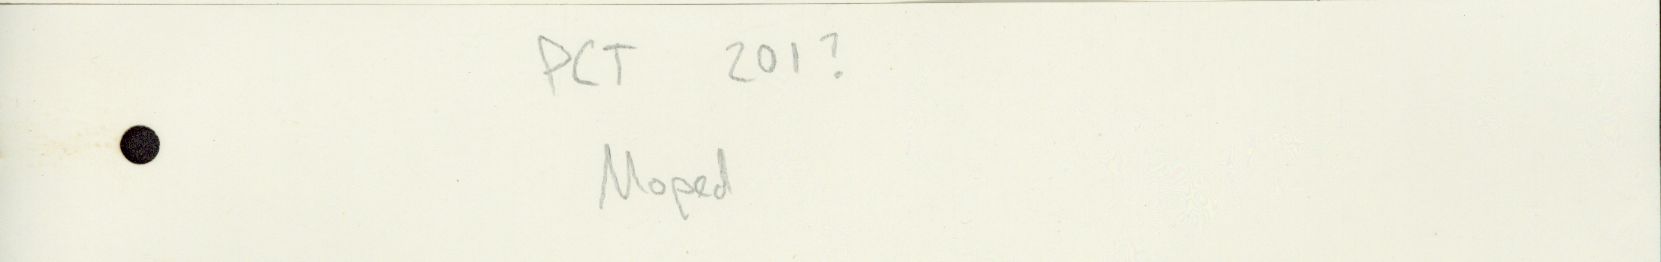 PCT 201?
Moped